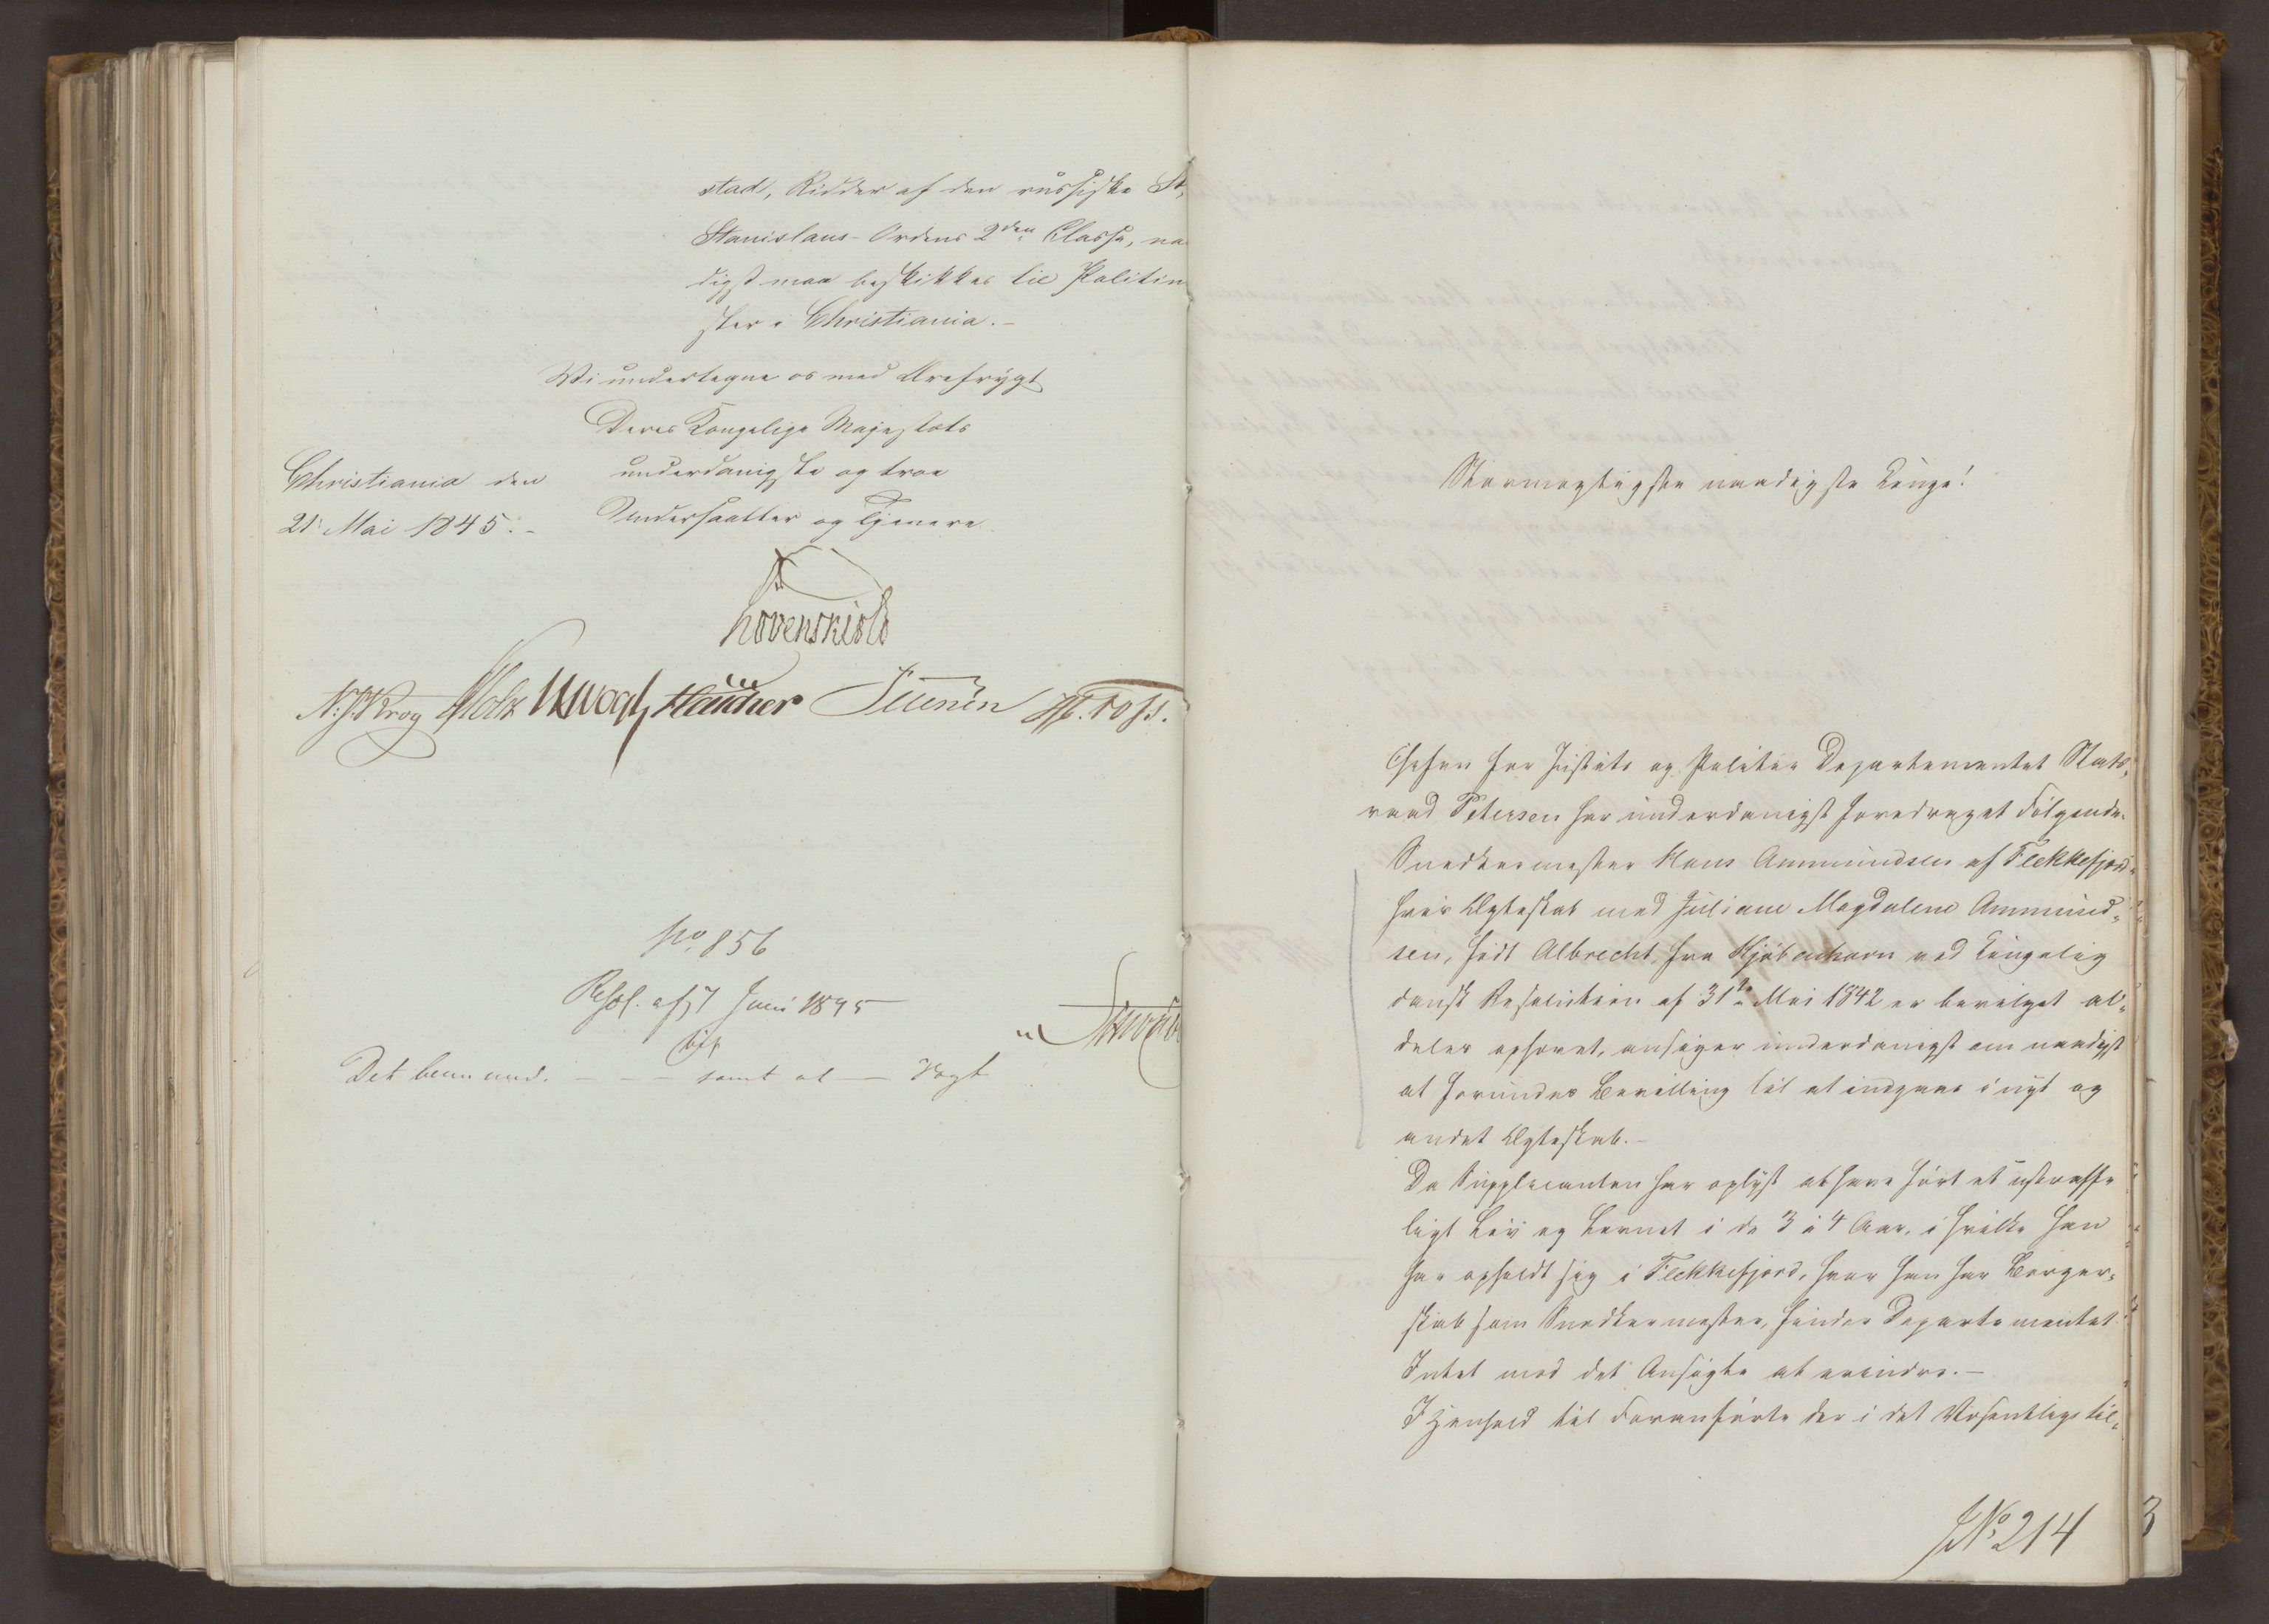 stad, Ridder af den russiske St,
Stanislaus-Ordens 2den Classe, naa
digst maa beskikkes til Politim
ster i Christiania.-
Vi undertegne os med Ærefrygt
Deres Kongelige Majestæts
underdanigste og troe
Undersaatter og Tjenere
Christiania den
21 Mai 1845.-
Løvenskiold
N:J:Krog Holst Vogt H. Foss.
No. 856
Resol. af 7 Juni 1845
Det bem. und. - - - samt at - Vogt
Stormægtigste naadigste Konge!
Chefen for Justits og Politie Departementet Stats,
raad Petersen har underdanigst foredraget Følgende.
Snedkermester Hans Ammundsen af Flekkefjord,
hvis Ægteskab med Juliane Magdalene Ammund,
sen, født Albrecht, fra Kjøbenhavn ved Kongelig
dansk Resolution af 31te Mai 1842 er bevilget al,
deles ophævet, ansøger underdanigst om naadigst
at forundes Bevilling til at indgaae i nyt og
andet Ægteskab.-
Da Supplicanten har oplyst at have ført et ustraffe
ligt Liv og Levnet i de 3 à 4 Aar, i hvilke han
har opholdt sig i Flekkefjord, hvor han har Borger,
skab som Snedkermester, finder Departementet
Intet mod det Ansøgte at erindre.-
I Henhold til Foranførte der i det Væsentlige til,
JNo 214
3